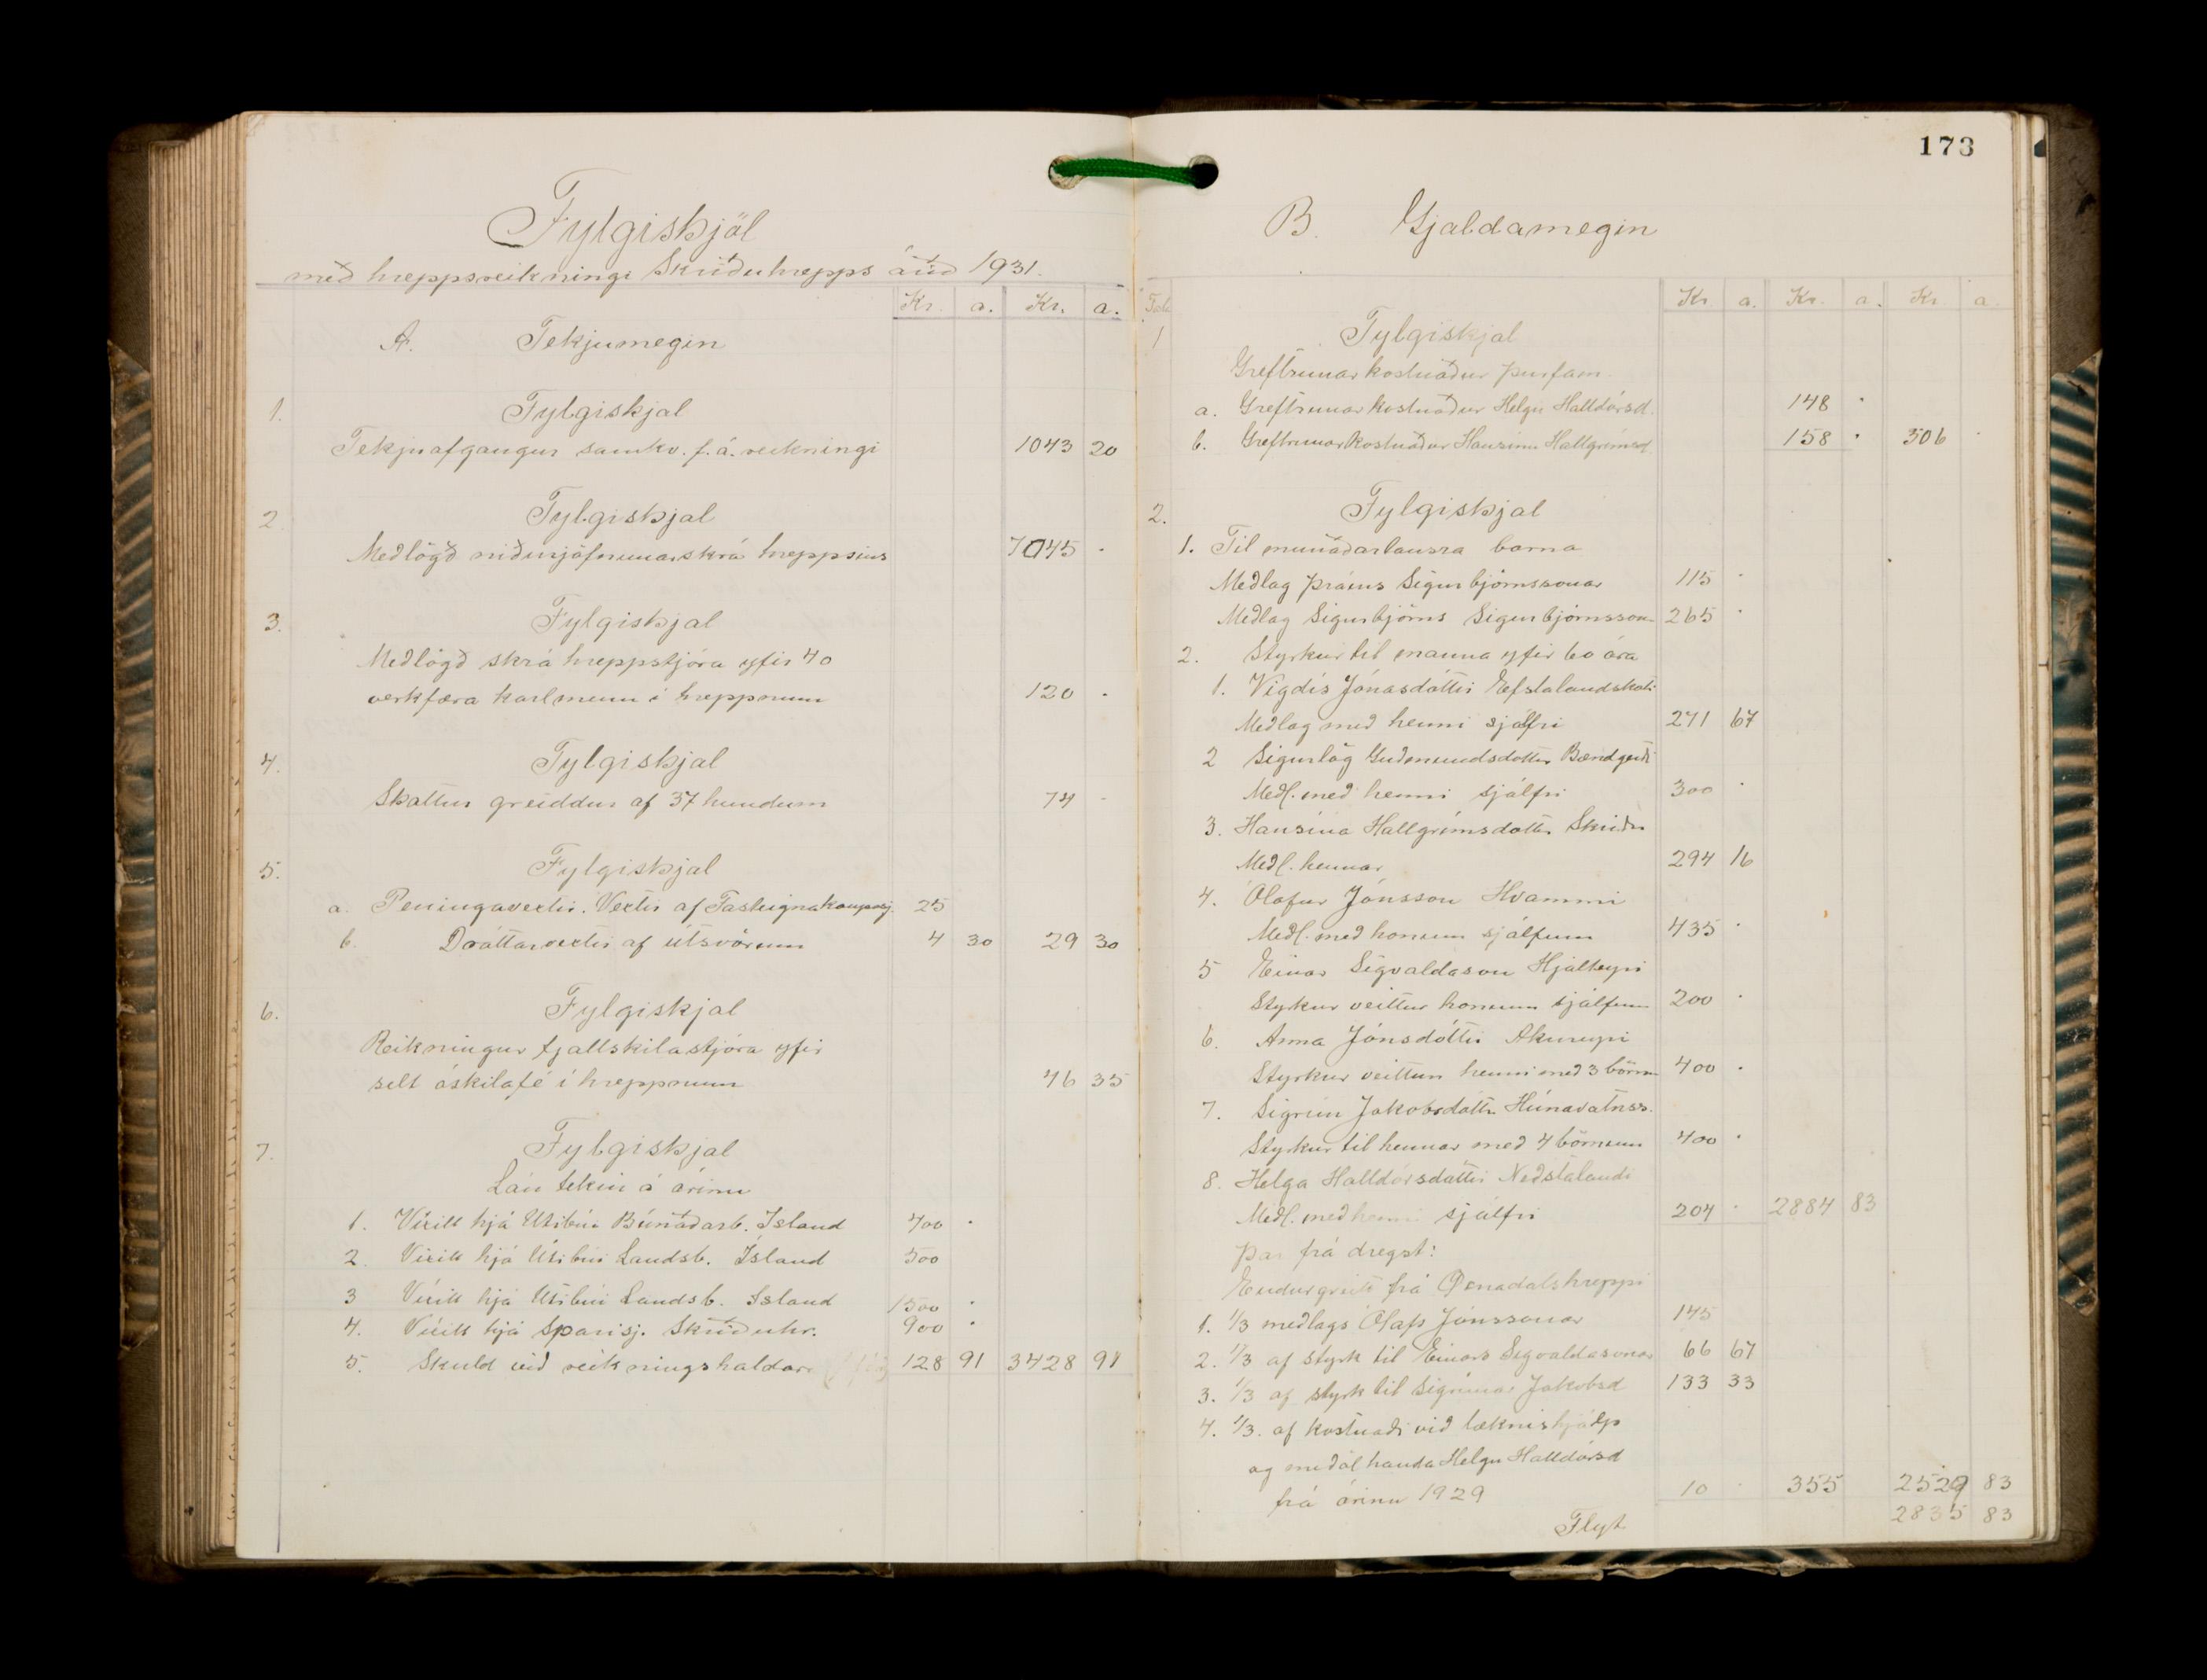 Fylgiskjöl
með hreppsreikningi Skriðuhrepps árið 1931.
Kr. a. Kr. a.
A. Tekjumegin
1. Fylgiskjal
Tekjuafgangur samkv. f. á. reikningi 1043 20
2 Fylgiskjal
Meðlögð niðurjöfnunarskrá hreppsins 7045 -
3. Fylgiskjal
Meðlögð skrá hreppstjóra yfir 40
verkfæra karlmenn í hreppnum 120 -
4. Fylgiskjal
Skattur greiddur af 37 hundum 74 -
5. Fylgiskjal
a. Peningavextir. Vextir af Fasteignakaupasj. 25
b. Dráttarvextir af útsvörum 4 30 29 30
6. Fylgiskjal
Reikningur fjallskilastjóra yfir
selt óskilafé í hreppnum 46 35
7. Fylgiskjal
Lán tekin á árinu
1. Víxill hjá Útibúi Búnaðarb. Ísland 400 .
2. Víxill hjá Útibúi Landsb. Ísland 500
3 Víxill hjá Útibúi Landsb. Ísland 1500 .
4. Víxill hjá Sparisj. Skriðuhr. 900 .
5. Skuld við reikningshaldara 128 91 3428 91
173
B. Gjaldamegin
Kr a. Kr. a. Kr a.
1 Fylgiskjal
Greftrunarkostnaður þurfam.
a. Greftrunarkostnaður Helgu Halldórsd. 148 .
b. Greftrunarkostnaður Hansínu Hallgrímsd. 158 . 306 .
2. Fylgiskjal
1. Til munaðarlausra barna
Meðlag Þráins Sigurbjörnssonar 115 .
Meðlag Sigurbjörns Sigurbjörnsson 265 .
2. Styrkur til manna yfir 60 ára
1. Vigdís Jónasdóttir Efstalandskoti
Meðlag með henni sjálfri 271 67
2 Sigurlög Guðmundsdóttir Bændgerði
Meðl. með henni sjálfri 300 .
3. Hansína Hallgrímsdóttir Skriðu
Meðl. hennar 294 16
4. Ólafur Jónsson Hvammi
Meðl. með honum sjálfum 435 .
5 Einar Sigvaldason Hjalteyri
Styrkur veittur honum sjálfum 200 .
6. Anna Jónsdóttir Akureyri
Styrkur veittur henni með 3 börnum 400 .
7. Sigrún Jakobsdóttir Húnavatnss.
Styrkur til hennar með 4 börnum 400 .
8. Helga Halldórsdóttir Neðstalandi
Meðl. með henni sjálfri 204 . 2884 83
Þar frá dregst:
Endurgreitt frá Öxnadalshreppi
1. 1/3 meðlags Ólafs Jónssonar 145
2. 1/3 af styrk til Einars Sigvaldasonar 66 67
3. 1/3 af styrk til Sigrúnar Jakobsd 133 33
4. 1/3. af kostnaði við læknishjálp
og meðöl handa Helgu Halldórsd
frá árinu 1929 10 . 355 2529 83
Flyt 2835 83